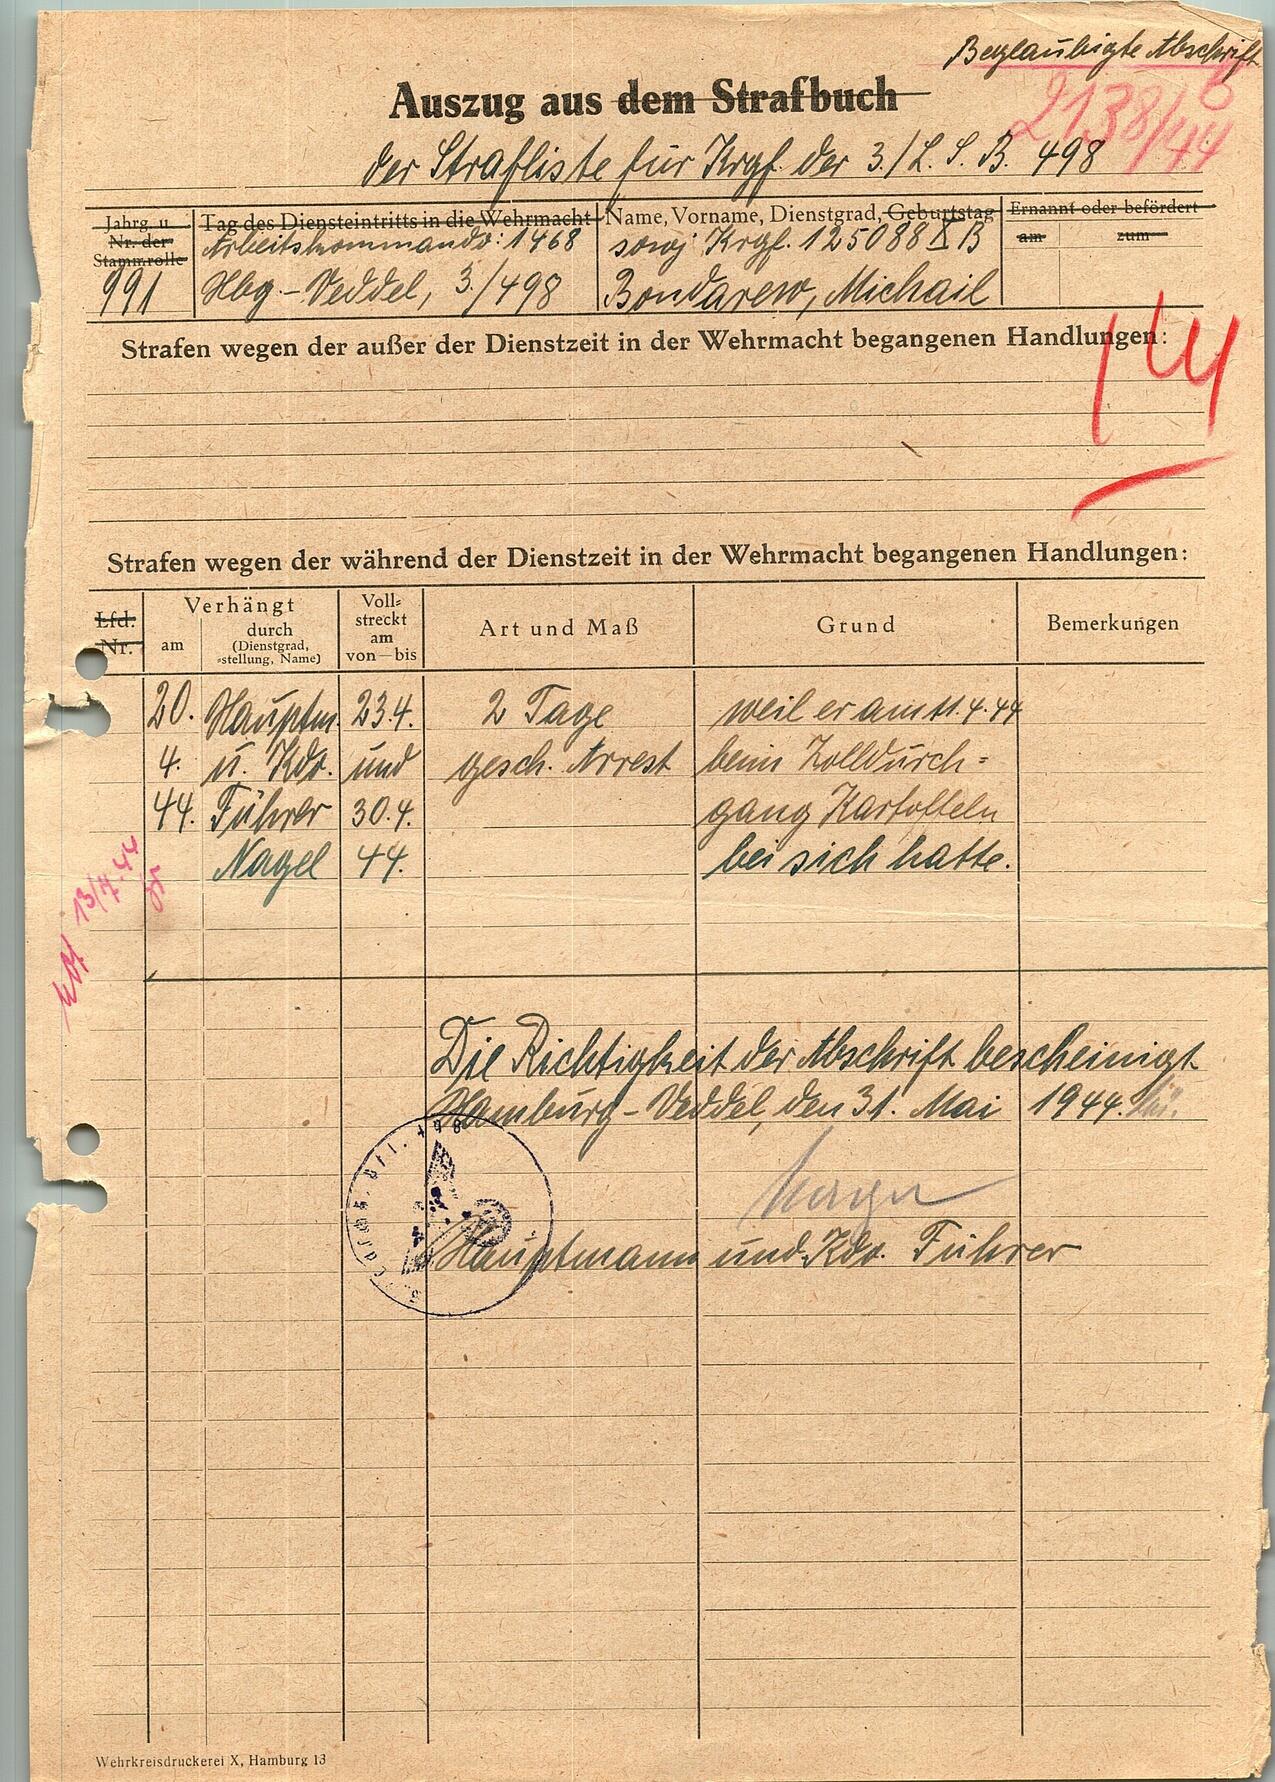 Beglaubigte Abschrift
Auszug aus dem Strafbuch
2138/44
der Strafliste für Krgf. der 3./L. S. B. 498
Jahrg. u. Nr. der Stammrolle
Tag des Diensteintritts in die Wehrmacht
Name, Vorname, Dienstgrad, Geburtstag
Ernannt oder befördert
am zum
Arbeitskommando: 1468
sowj Krgf. 125088 X B
991
Hbg.-Veddel, 3./498
Bondarew, Michail
Strafen wegen der außer der Dienstzeit in der Wehrmacht begangenen Handlungen:
Strafen wegen der während der Dienstzeit in der Wehrmacht begangenen Handlungen:
Lfd. Nr.
Verhängt
am
durch
(Dienstgrad,
-stellung, Name)
Voll-
streckt
am
von—bis
Art und Maß
Grund
Bemerkungen
20. Hauptm. 23.4. 2 Tage weil er am 11.4.44
4. u. Kdo. und gesch. Arrest beim Zolldurch-
44. Führer 30.4. gang Kartoffeln
Nagel 44. bei sich hatte.
13/7.44
Die Richtigkeit der Abschrift bescheinigt
Hamburg-Veddel, den 31. Mai 1944.
498
Hauptmann und Kdo. Führer
Wehrkreisdruckerei X, Hamburg 13